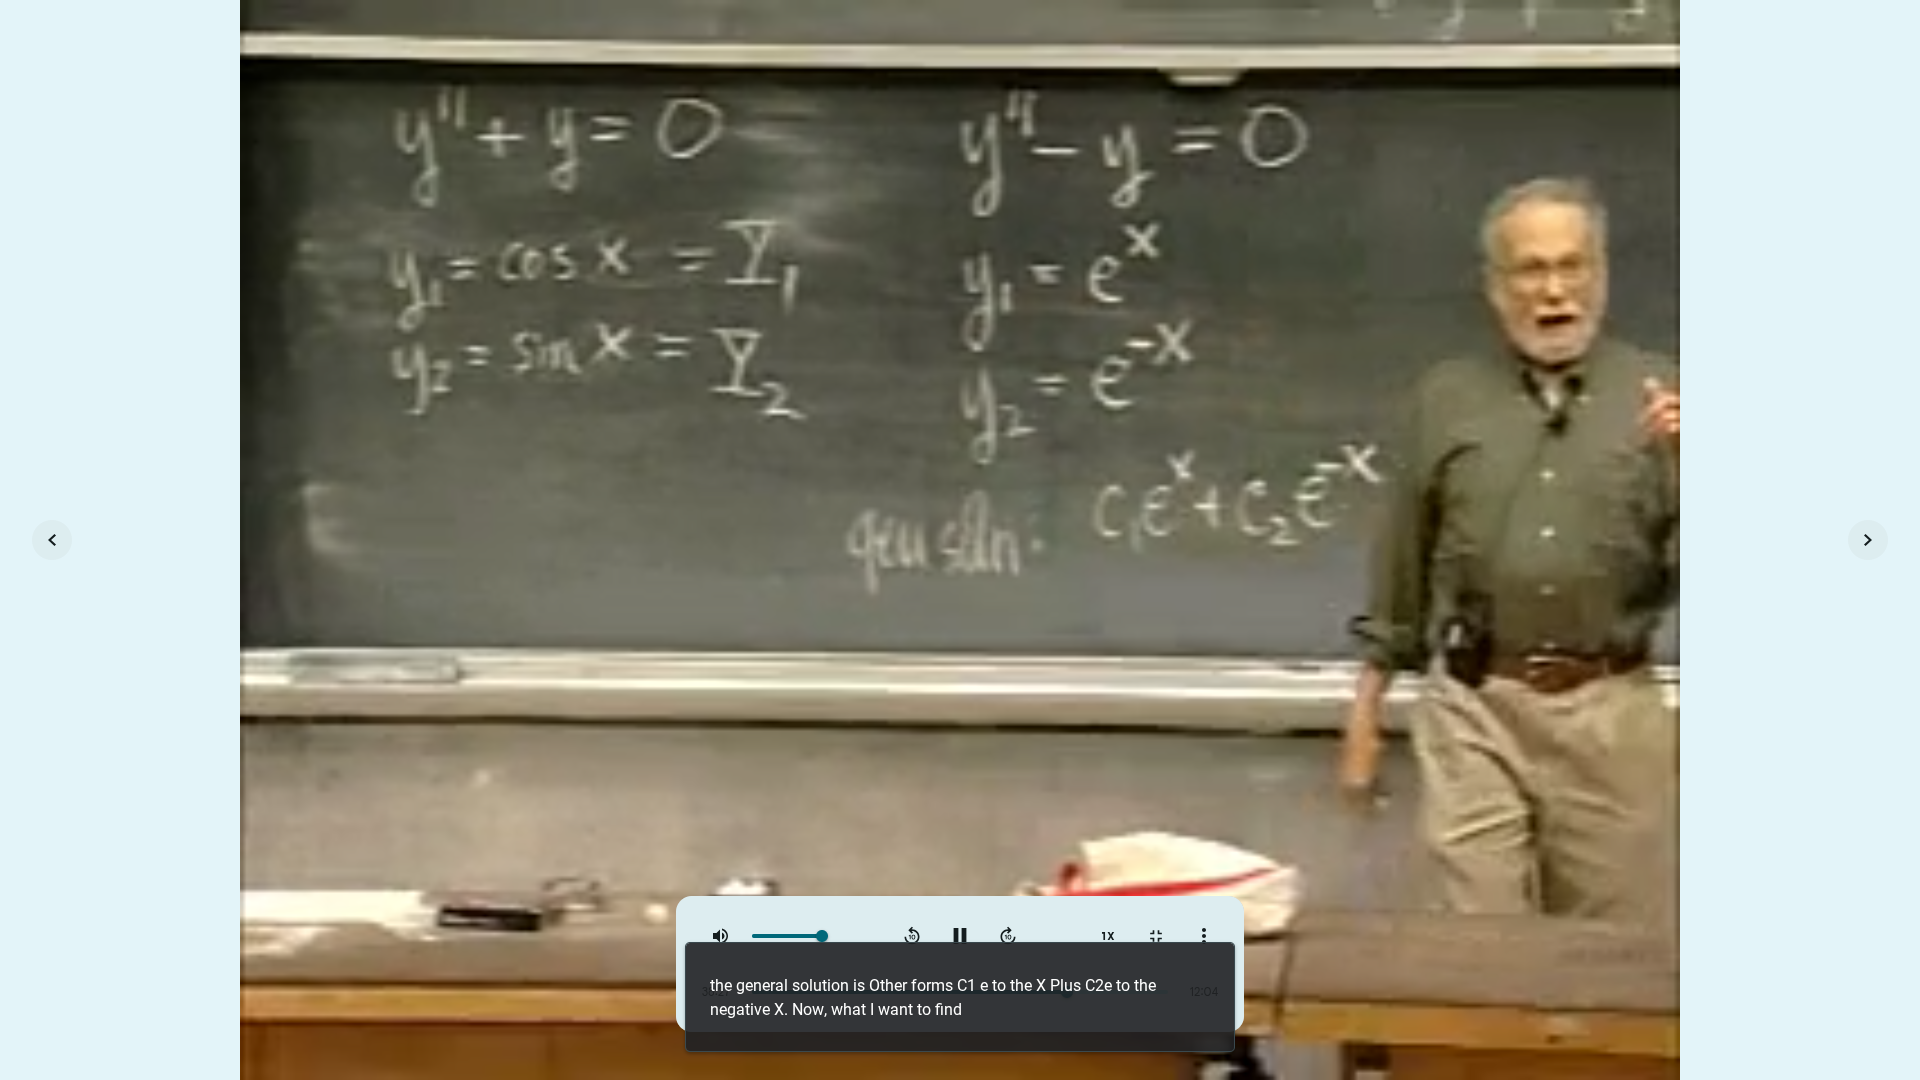 y" + y = 0
y₁ = cos x = Y₁
y₂ = sin x = Y₂
y" - y = 0
y₁ = eˣ
y₂ = e⁻ˣ
gen soln: c₁eˣ + c₂e⁻ˣ
10
10
1X
12:04
the general solution is Other forms C1 e to the X Plus C2e to the
negative X. Now, what I want to find